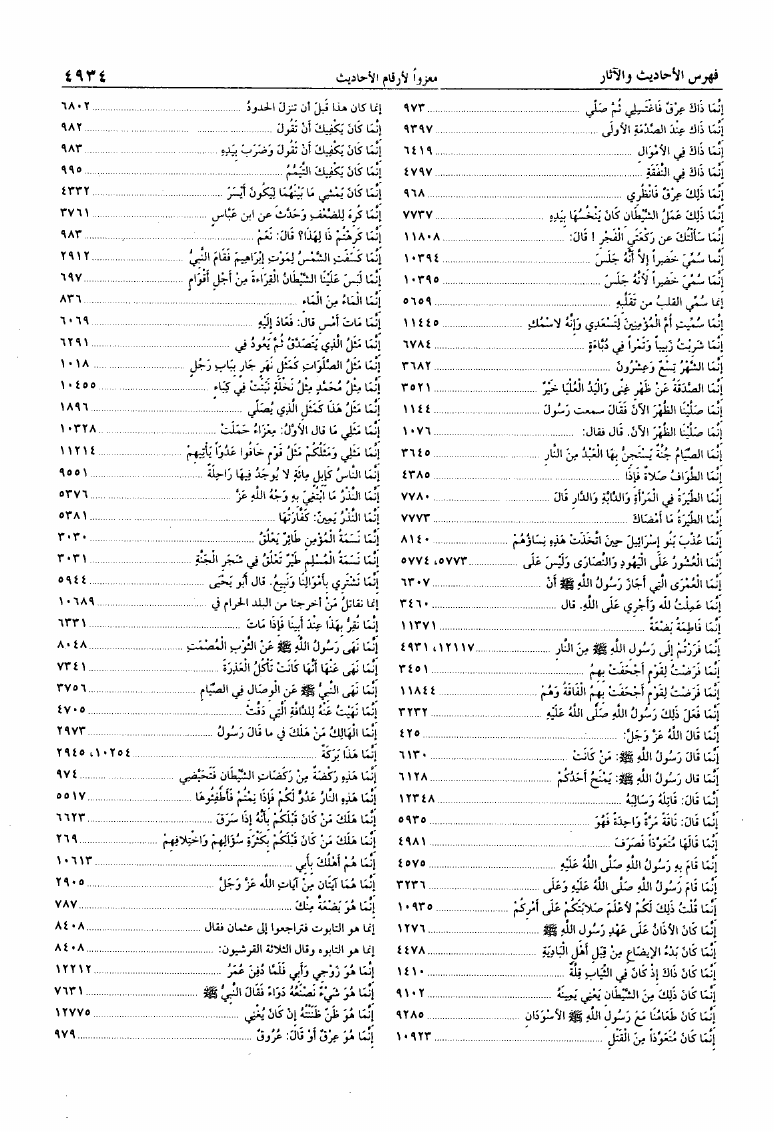 فهرس الأحاديث والآثار
معزواً لأرقام الأحاديث
٤٩٣٤
إِنَّمَا ذَاكَ عِرْقٌ فَاغْتَسِلِي ثُمَّ صَلِّي ... ٩٧٣
إِنَّمَا ذَاكَ عِنْدَ الصَّدْمَةِ الأُولَى ... ٩٣٩٧
إِنَّمَا ذَاكَ فِي الأَمْوَالِ ... ٦٤١٩
إِنَّمَا ذَاكَ فِي النَّفَقَةِ ... ٤٧٩٧
إِنَّمَا ذَلِكَ عِرْقٌ فَانْظُرِي ... ٩٦٨
إِنَّمَا ذَلِكَ عَمَلُ الشَّيْطَانِ كَانَ يَنْخُسُهَا بِيَدِهِ ... ٧٧٣٧
إِنَّمَا سَأَلْتُكَ عن رَكْعَتَيِ الْفَجْرِ ! قَالَ: ... ١١٨٠٨
إِنَّمَا سُمِّيَ خَضِراً إِلاَّ أَنَّهُ جَلَسَ ... ١٠٣٩٤
إِنَّمَا سُمِّيَ خَضِراً لأَنَّهُ جَلَسَ ... ١٠٣٩٥
إنما سُمِّي القلبُ من تَقَلُّبِهِ ... ٥٦٥٩
إِنَّمَا سُمِّيتِ أُمَّ الْمُؤْمِنِينَ لِتَسْعَدِي وَإِنَّهُ لاسْمُكِ ... ١١٤٤٥
إِنَّمَا شَرِبْتُ زَبِيباً وَتَمْراً فِي دُبَّاءَةٍ ... ٦٧٨٤
إِنَّمَا الشَّهْرُ تِسْعٌ وَعِشْرُونَ ... ٣٦٨٢
إِنَّمَا الصَّدَقَةُ عَنْ ظَهْرِ غِنًى وَالْيَدُ الْعُلْيَا خَيْرٌ ... ٣٥٢١
إِنَّمَا صَلَّيْنَا الظُّهْرَ الآنَ فَقَالَ سمعت رَسُولَ ... ١١٤٤
إِنَّمَا صَلَّيْنَا الظُّهْرَ الآنَ. قَال فقال: ... ١٠٧٦
إِنَّمَا الصِّيَامُ جُنَّةٌ يَسْتَجِنُّ بِهَا الْعَبْدُ مِنَ النَّارِ ... ٣٦٤٥
إِنَّمَا الطَّوَافُ صَلاَةٌ فَإِذَا ... ٤٣٨٥
إِنَّمَا الطِّيَرَةُ فِي الْمَرْأَةِ وَالدَّابَّةِ وَالدَّارِ قَالَ ... ٧٧٨٠
إِنَّمَا الطِّيَرَةُ مَا أَمْضَاكَ ... ٧٧٧٣
إِنَّمَا عُذِّبَ بَنُو إِسْرَائِيلَ حِينَ اتَّخَذَتْ هَذِهِ نِسَاؤُهُمْ ... ٨١٤٠
إِنَّمَا الْعُشُورُ عَلَى الْيَهُودِ وَالنَّصَارَى وَلَيْسَ عَلَى ... ٥٧٧٣، ٥٧٧٤
إِنَّمَا الْعُمْرَى الَّتِي أَجَازَ رَسُولُ اللَّهِ ﷺ أَنْ ... ٦٣٠٧
إِنَّمَا عَمِلْتُ لله وَأَجْرِي عَلَى اللَّهِ. قال ... ٣٤٦٠
إِنَّمَا فَاطِمَةُ بَضْعَةٌ ... ١١٣٧١
إِنَّمَا فَرَرْتُمْ إِلَى رَسُولِ اللَّهِ ﷺ مِنَ النَّارِ ... ١٢١١٧، ٤٩٣١
إِنَّمَا فَرَضْتُ لِقَوْمٍ أَجْحَفَتْ بِهِمُ ... ٣٤٥١
إِنَّمَا فَرَضْتُ لِقَوْمٍ أَجْحَفَتْ بِهِمُ الْفَاقَةُ وَهُمْ ... ١١٨٤٤
إِنَّمَا فَعَلَ ذَلِكَ رَسُولُ اللَّهِ صَلَّى اللَّهُ عَلَيْهِ ... ٣٢٣٢
إِنَّمَا قَالَ اللَّهُ عَزَّ وَجَلَّ: ... ٤٢٥
إِنَّمَا قَالَ رَسُولُ اللَّهِ ﷺ: مَنْ كَانَتْ ... ٦١٣٠
إِنَّمَا قال رَسُولُ اللَّهِ ﷺ: يَمْنَحُ أَحَدُكُمْ ... ٦١٢٨
إِنَّمَا قَالَ: قَاتِلُهُ وَسَالِبُهُ ... ١٢٣٤٨
إِنَّمَا قَالَ: نَاقَةً مَرَّةً وَاحِدَةً فَهُوَ ... ٥٩٣٥
إِنَّمَا قَالَهَا مُتَعَوِّذاً فَصَرَفَ ... ٤٩٨١
إِنَّمَا قَامَ بِهِ رَسُولُ اللَّهِ صَلَّى اللَّهُ عَلَيْهِ ... ٤٥٧٥
إِنَّمَا قَامَ رَسُولُ اللَّهِ صَلَّى اللَّهُ عَلَيْهِ وَعَلَى ... ٣٢٣٦
إِنَّمَا قُلْتُ ذَلِكَ لَكُمْ لأَعْلَمَ صَلاَبَتَكُمْ عَلَى أَمْرِكُمْ ... ١٠٩٣٥
إِنَّمَا كَانَ الأَذَانُ عَلَى عَهْدِ رَسُولِ اللَّهِ ﷺ ... ١٢٧٦
إِنَّمَا كَانَ بَدْءُ الإِيضَاعِ مِنْ قِبَلِ أَهْلِ الْبَادِيَةِ ... ٤٤٧٨
إِنَّمَا كَانَ ذَاكَ إِذْ كَانَ فِي الثِّيَابِ قِلَّةٌ ... ١٤١٠
إِنَّمَا كَانَ ذَلِكَ مِنَ الشَّيْطَانِ يَعْنِي يَمِينَهُ ... ٩١٠٢
إِنَّمَا كَانَ طَعَامُنَا مَعَ رَسُولِ اللَّهِ ﷺ الأَسْوَدَانِ ... ٩٢٨٥
إِنَّمَا كَانَ مُتَعَوِّذاً مِنَ الْقَتْلِ ... ١٠٩٢٣
إنما كان هذا قَبْلَ أن تنزلَ الحدودُ ... ٦٨٠٢
إِنَّمَا كَانَ يَكْفِيكَ أَنْ تَقُولَ ... ٩٨٢
إِنَّمَا كَانَ يَكْفِيكَ أَنْ تَقُولَ وَضَرَبَ بِيَدِهِ ... ٩٨٣
إِنَّمَا كَانَ يَكْفِيكَ التَّيَمُّمُ ... ٩٩٥
إِنَّمَا كَانَ يَمْشِي مَا بَيْنَهُمَا لِيَكُونَ أَيْسَرَ ... ٤٣٣٢
إِنَّمَا كُرِهَ لِلضَّعْفِ وَحَدَّثَ عن ابن عَبَّاسٍ ... ٣٧٦١
إِنَّمَا كَرِهْتُمْ ذَا لِهَذَا؟ قَالَ: نَعَمْ ... ٩٨٣
إِنَّمَا كَسَفَتِ الشَّمْسُ لِمَوْتِ إِبْرَاهِيمَ فَقَامَ النَّبِيُّ ... ٢٩١٢
إِنَّمَا لَبَسَ عَلَيْنَا الشَّيْطَانُ الْقِرَاءَةَ مِنْ أَجْلِ أَقْوَامٍ ... ٦٩٧
إِنَّمَا الْمَاءُ مِنَ الْمَاءِ ... ٨٣٦
إِنَّمَا مَاتَ أَمْسِ قال: فَعَادَ إِلَيْهِ ... ٦٠٦٩
إِنَّمَا مَثَلُ الَّذِي يَتَصَدَّقُ ثُمَّ يَعُودُ فِي ... ٦٢٩١
إِنَّمَا مَثَلُ الصَّلَوَاتِ كَمَثَلِ نَهْرٍ جَارٍ بِبَابِ رَجُلٍ ... ١٠١٨
إِنَّمَا مِثْلُ مُحَمَّدٍ مِثْلُ نَخْلَةٍ نَبَتَتْ فِي كِبَاءٍ ... ١٠٤٥٥
إِنَّمَا مَثَلُ هَذَا كَمَثَلِ الَّذِي يُصَلِّي ... ١٨٩٦
إِنَّمَا مَثَلِي مَا قال الأَوَّلُ: مِعْزَاءُ حَمَلَتْ ... ١٠٣٢٨
إِنَّمَا مَثَلِي وَمَثَلُكُمْ مَثَلُ قَوْمٍ خَافُوا عَدُوّاً يَأْتِيهِمْ ... ١١٢١٤
إِنَّمَا النَّاسُ كَإِبِلٍ مِائَةٍ لاَ يُوجَدُ فِيهَا رَاحِلَةٌ ... ٩٥٥١
إِنَّمَا النَّذْرُ مَا ابْتُغِيَ بِهِ وَجْهُ اللَّهِ عَزَّ ... ٥٣٧٦
إِنَّمَا النَّذْرُ يَمِينٌ: كَفَّارَتُهَا ... ٥٣٨١
إِنَّمَا نَسَمَةُ الْمُؤْمِنِ طَائِرٌ يَعْلُقُ ... ٣٠٣٠
إِنَّمَا نَسَمَةُ الْمُسْلِمِ طَيْرٌ تَعْلُقُ فِي شَجَرِ الْجَنَّةِ ... ٣٠٣١
إِنَّمَا نَشْتَرِي بِأَمْوَالِنَا وَنَبِيعُ. قال أَبُو يَحْيَى ... ٥٩٤٤
إنما نقاتلُ مَنْ أخرجنا من البلد الحرام في ... ١٠٦٨٩
إِنَّمَا نُقِرُّ بِهَذَا عِنْدَ أَبِينَا فَإِذَا مَاتَ ... ٦٣٣١
إِنَّمَا نَهَى رَسُولُ اللَّهِ ﷺ عَنِ الثَّوْبِ الْمُصْمَتِ ... ٨٠٤٨
إِنَّمَا نَهَى عَنْهَا أَنَّهَا كَانَتْ تَأْكُلُ الْعَذِرَةَ ... ٧٣٤١
إِنَّمَا نَهَى النَّبِيُّ ﷺ عَنِ الْوِصَالِ فِي الصِّيَامِ ... ٣٧٥٦
إِنَّمَا نَهَيْتُ عَنْهُ لِلدَّافَّةِ الَّتِي دَفَّتْ ... ٤٧٠٥
إِنَّمَا الْهَالِكُ مَنْ هَلَكَ فِي مَا قَالَ رَسُولُ ... ٢٩٧٣
إِنَّمَا هَذَا بَرَكَةٌ ... ١٠٢٥٤، ٢٩٤٥
إِنَّمَا هَذِهِ رَكْضَةٌ مِنْ رَكَضَاتِ الشَّيْطَانِ فَتَحَيَّضِي ... ٩٧٤
إِنَّمَا هَذِهِ النَّارُ عَدُوٌّ لَكُمْ فَإِذَا نِمْتُمْ فَأَطْفِئُوهَا ... ٥٥١٧
إِنَّمَا هَلَكَ مَنْ كَانَ قَبْلَكُمْ بِأَنَّهُ إِذَا سَرَقَ ... ٦٦٢٣
إِنَّمَا هَلَكَ مَنْ كَانَ قَبْلَكُمْ بِكَثْرَةِ سُؤَالِهِمْ وَاخْتِلاَفِهِمْ ... ٢٦٩
إِنَّمَا هُمْ أَهْلُكَ بِأَبِي ... ١٠٦١٣
إِنَّمَا هُمَا آيَتَانِ مِنْ آيَاتِ اللَّه عَزَّ وَجَلَّ ... ٢٩٠٥
إِنَّمَا هُوَ بَضْعَةٌ مِنْكَ ... ٧٨٧
إنما هو التابوت فتراجعوا إلى عثمان فقال ... ٨٤٠٨
إنما هو التابوه وقال الثلاثة القرشيون: ... ٨٤٠٨
إِنَّمَا هُوَ زَوْجِي وَأَبِي فَلَمَّا دُفِنَ عُمَرُ ... ١٢٢١٢
إِنَّمَا هُوَ شَيْءٌ نَصْنَعُهُ دَوَاءً فَقَالَ النَّبِيُّ ﷺ ... ٧٦٣١
إِنَّمَا هُوَ ظَنٌّ ظَنَنْتُهُ إِنْ كَانَ يُغْنِي ... ١٢٧٧٥
إِنَّمَا هُوَ عِرْقٌ أَوْ قَالَ: عُرُوقٌ ... ٩٧٩